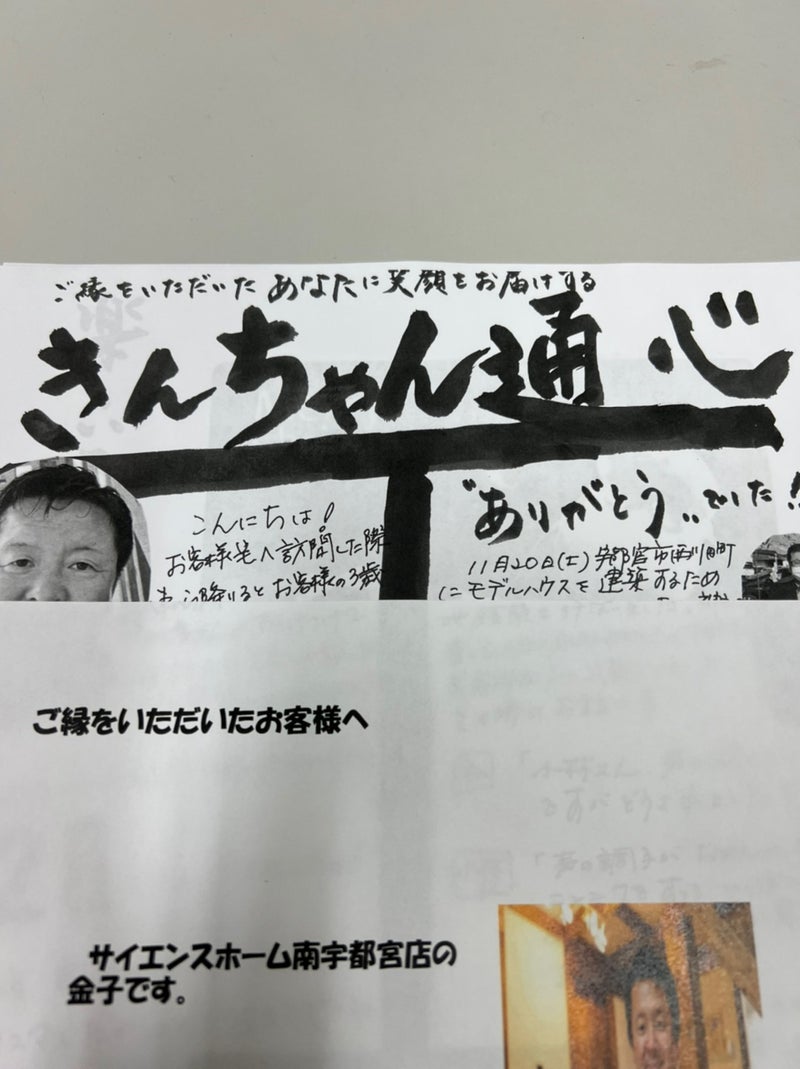 ご縁をいただいた あなたに笑顔をお届けする
きんちゃん通心
こんにちは!
お客様宅へ訪問した際
降りるとお客様の3歳
"ありがとう"でした!!
11月20日(土)宇都宮市西川田町
にモデルハウスを建築するため
ご縁をいただいたお客様へ
サイエンスホーム南宇都宮店の
金子です。